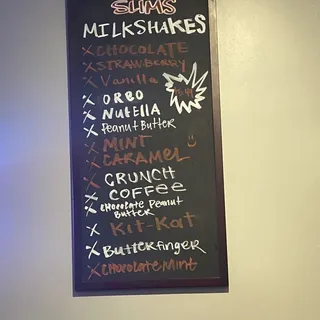 SLIMS
MILKSHAKES
X CHOCOLATE
X STRAWBERRY
X Vanilla
X OREO
X NUTELLA
X Peanut Butter
X MINT
X CARAMEL
X CRUNCH
X COFFEE
X CHOCOLATE Peanut
BUTTER
X Kit-Kat
X Butterfinger
X CHOCOLATE Mint